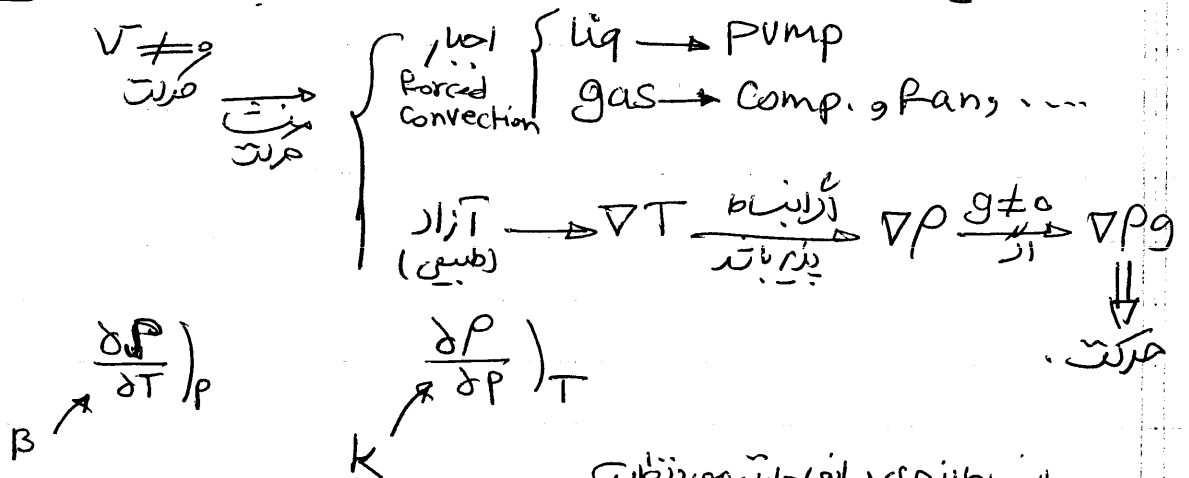 V ≠ 0 حرکت → منشأ حرکت
اجبار Forced Convection { Liq → pump
gas → Comp. , Fan, ....
آزاد (طبیعی) → ∇T → اگر انبساط پذیر باشد ∇ρ → g≠0 اگر ∇ρg
⇓
حرکت.
∂ρ/∂T)P ∂ρ/∂P)T
β K